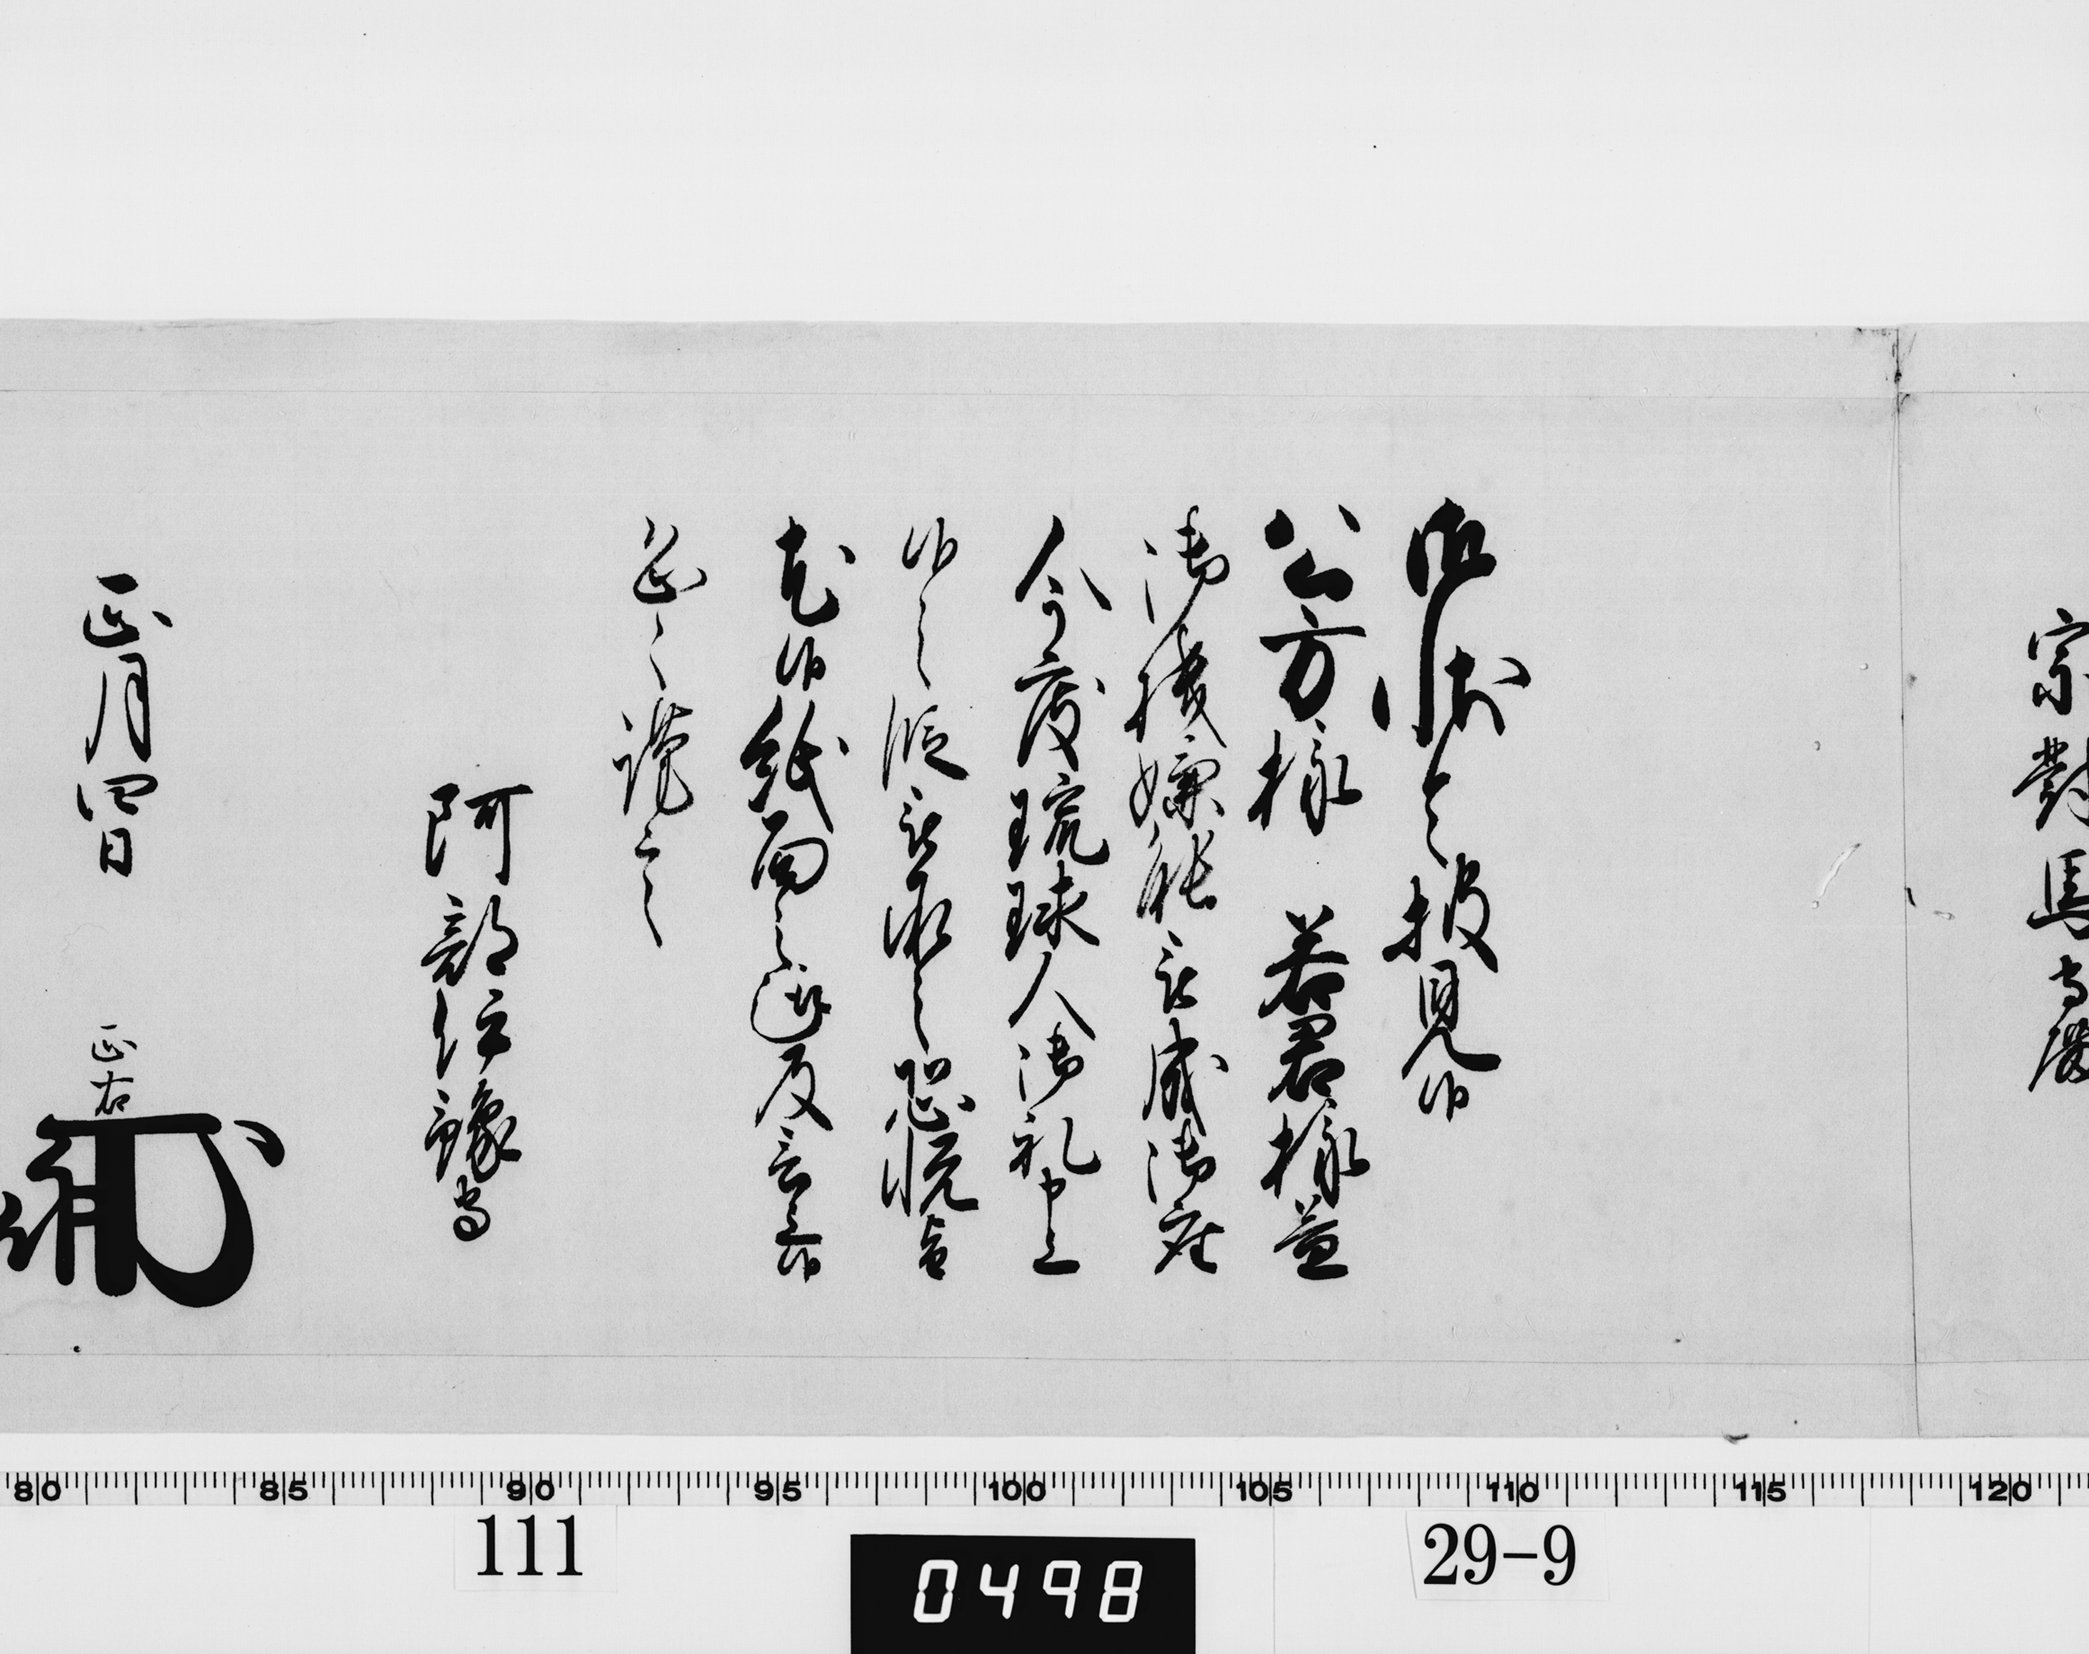 宗對馬守殿
御状令披見候
公方様 若君様益
御機嫌能被成御座
今度琉球人御礼申上
候之段被承之恐悦旨
尤候紙面之趣及言上候
恐々謹言
阿部伊豫守
正月四日 正右
80 85 90 95 100 105 110 115 120
111
0498
29-9